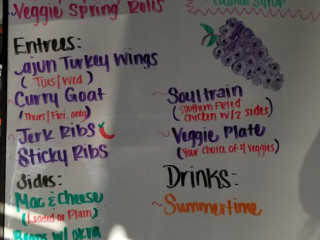 Veggie Spring Rolls
Entrees:
Cajun Turkey Wings
(Tues/Wed)
Curry Goat
(Thurs/Fri. only)
~Jerk Ribs
Sticky Ribs
Sides:
Mac & Cheese
(Loaded or Plain)
Beans w/ okra
~Soultrain
(Southern Fried
Chicken w/2 sides)
~Veggie Plate
(Your choice of 4 veggies)
Drinks:
~Summertime